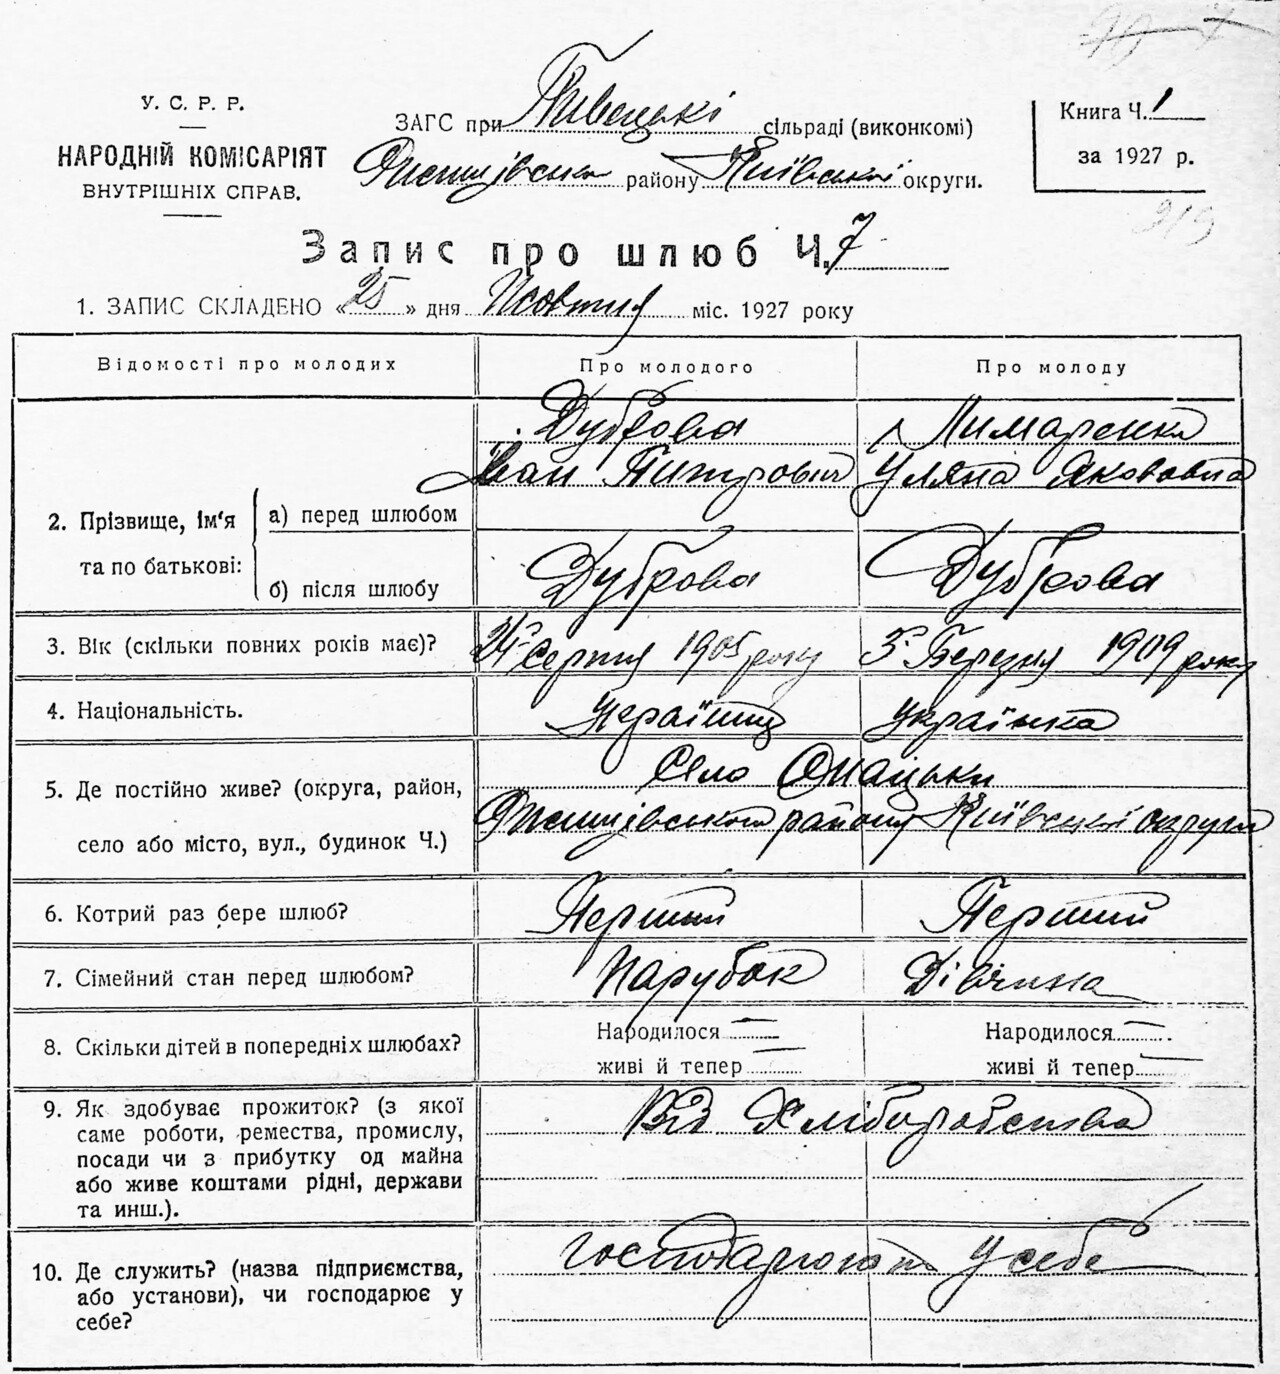 У. С. Р. Р.
НАРОДНІЙ КОМІСАРІЯТ
ВНУТРІШНІХ СПРАВ.
ЗАГС при Пивецькі сільраді (виконкомі)
району Київської округи.
Книга Ч. 1
за 1927 р.
919
Запис про шлюб Ч. 7
1. ЗАПИС СКЛАДЕНО «25» дня Жовтня міс. 1927 року
Відомості про молодих Про молодого Про молоду
2. Прізвище, ім'я та по батькові:
а) перед шлюбом
Дуброва
Іван
Лимаренко
Уляна Яковавна
б) після шлюбу Дуброва Дуброва
3. Вік (скільки повних років має)? 24го Серпня 1905 року 5го Березня 1909 року
4. Національність. Українець Українка
5. Де постійно живе? (округа, район, село або місто, вул., будинок Ч.)
Село Онацьки
району Київської округи
6. Котрий раз бере шлюб? Перший Перший
7. Сімейний стан перед шлюбом? Парубок Дівчина
8. Скільки дітей в попередніх шлюбах?
Народилося — Народилося —
живі й тепер — живі й тепер —
9. Як здобуває прожиток? (з якої
саме роботи, ремества, промислу,
посади чи з прибутку од майна
або живе коштами рідні, держави
та инш.).
Від Хліборобства
10. Де служить? (назва підприємства,
або установи), чи господарює у
себе?
господарюють у себе